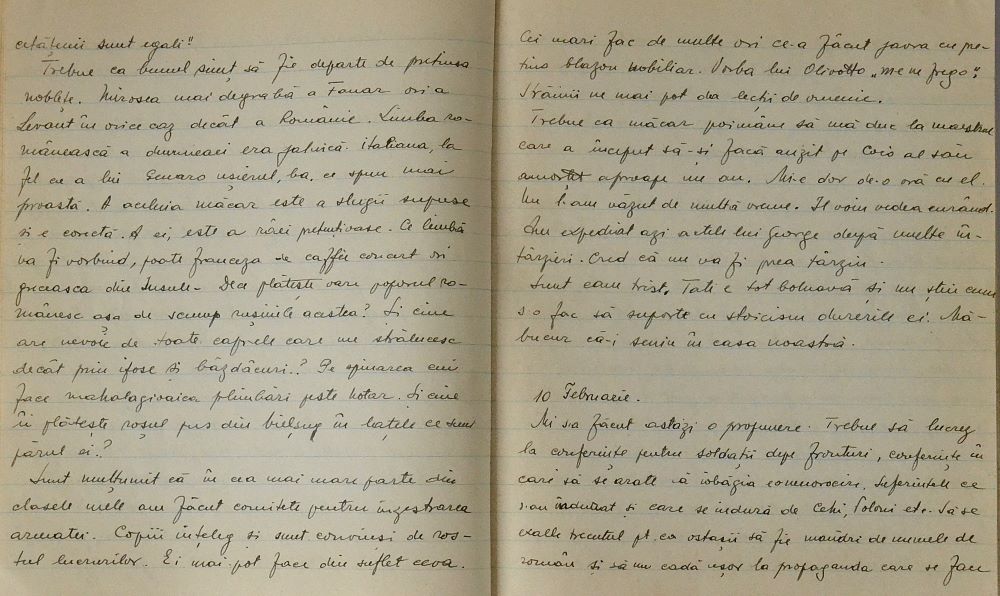 cetățenii sunt egali!"
Trebue ca bunul simț să fie departe de pretinsa
noblețe. Mirosea mai degrabă a Fanar ori a
Levant în orice caz decât a Românie. Limba ro-
mânească a dumneaei era jalnică. Italiana, la
fel cu a lui Genaro ușierul, ba, ce spun mai
proastă. A aceluia măcar este a slugii supuse
și e corectă. A ei, este a târfei pretențioase. Ce limbă
va fi vorbind, poate franceza de caffée concert ori
greceasca din insule. Dece plătește oare poporul ro-
mânesc așa de scump rușinile acestea? Și cine
are nevoie de toate caprele care nu strălucesc
decât prin ifose și bâzdâcuri.? Pe spinarea cui
face mahalagioaica plimbări peste hotar. Și cine
îi plătește roșul pus din bielșug în lațele ce sunt
părul ei.?
Sunt mulțumit că în cea mai mare parte din
clasele mele am făcut comitete pentru înzestrarea
armatei. Copiii înțeleg și sunt convinși de ros-
tul lucrurilor. Ei mai pot face din suflet ceva.
Cei mari fac de multe ori ce-a făcut javra cu pre-
tins blazon nobiliar. Vorba lui Olivotto „me ne frego".
Străinii ne mai pot da lecții de omenie.
Trebue ca măcar poimâine să mă duc la maestrul
care a început să-și facă auzit pe al său
amorțit aproape un an. Mi-e dor de-o oră cu el.
Nu l-am văzut de multă vreme. Îl voiu vedea curând.
Am expediat azi actele lui George după multe în-
târzieri. Cred că nu va fi prea târziu.
Sunt cam trist. Tati e tot bolnavă și nu știu cum
s-o fac să suporte cu stoicism durerile ei. Mă-
bucur că-i senin în casa noastră.
10 Februarie.
Mi s-a făcut astăzi o propunere. Trebue să lucrez
la conferințe pentru soldații depe fronturi, conferințe în
care să se arate că iobăgia e o nenorocire, suferințele ce
s-au îndurat și care se îndură de Cehi, Poloni etc. Să se
exalte trecutul pt. ca ostașii să fie mândri de numele de
român și să nu cadă ușor la propaganda care se face